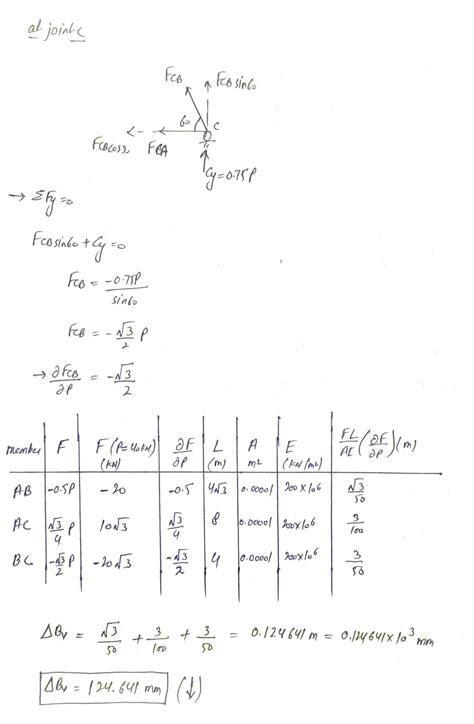 at joint C
FCB
FCB sin60
60
C
FCBcos60
FCA
Cy=0.75P
→ ΣFy=0
FCB sin60 + Cy = 0
FCB = -0.75P / sin60
FCB = -√3/2 P
→ ∂FCB/∂P = -√3/2
member F F (P=40kN) (kN) ∂F/∂P L (m) A m² E (kN/m²) FL/AE (∂F/∂P) (m)
AB -0.5P -20 -0.5 4√3 0.00001 200×10⁶ √3/50
AC √3/4 P 10√3 √3/4 8 0.00001 200×10⁶ 3/100
BC -√3/2 P -20√3 -√3/2 4 0.00001 200×10⁶ 3/50
ΔBv = √3/50 + 3/100 + 3/50 = 0.124641 m = 0.124641×10³ mm
ΔBv = 124.641 mm (↓)